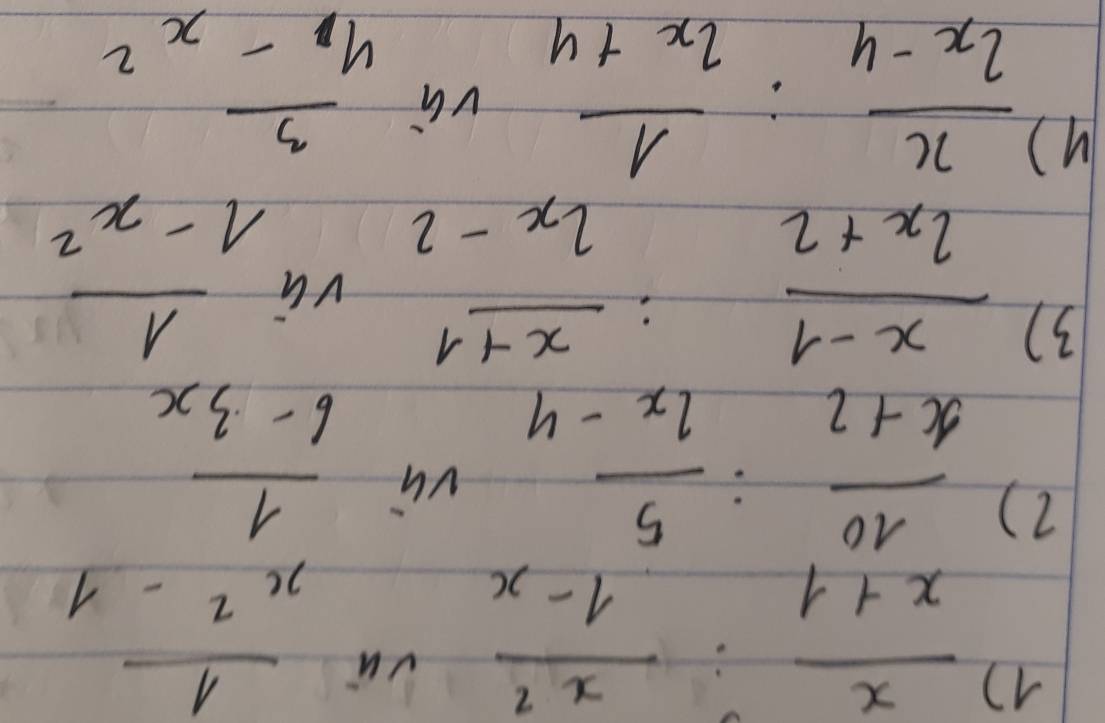 1) x/(x+1) ; x²/(1-x) và 1/(x²-1)
2) 10/(x+2) ; 5/(2x-4) và 1/(6-3x)
3) (x-1)/(2x+2) ; (x+1)/(2x-2) và 1/(1-x²)
4) x/(2x-4) ; 1/(2x+4) và 3/(4-x²)